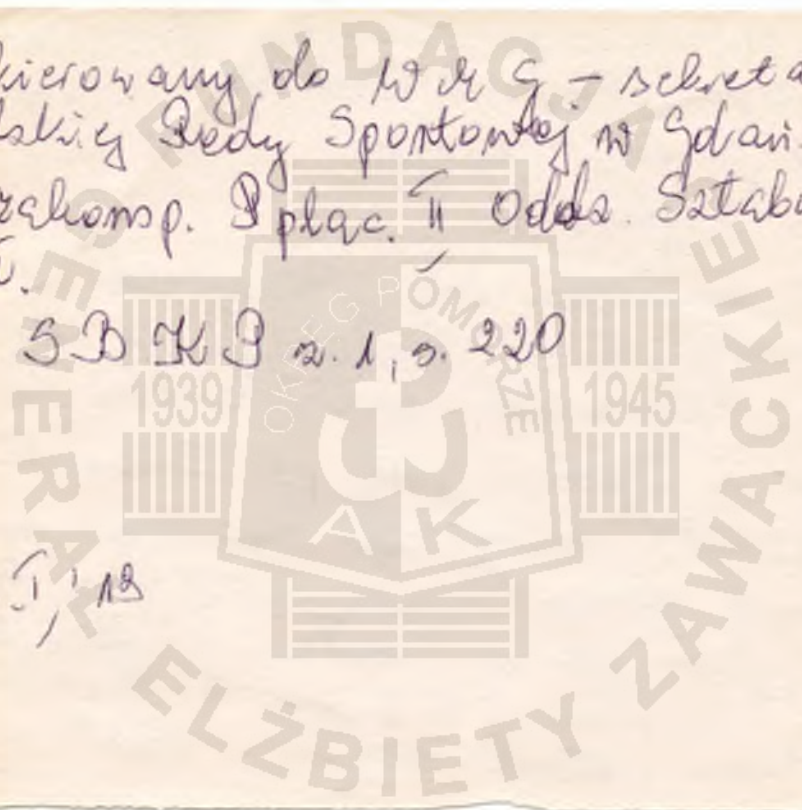 kierowany do W M G – sekreta
lskiej Rady Sportowej w Gdań
zakonsp. Pplac. II Oddz. Sztabu
S B K P z. 1, s. 220
I, 19
FUNDACJA GENERAŁ ELŻBIETY ZAWACKIEJ
OKRĘG POMORZE
1939 1945
A K